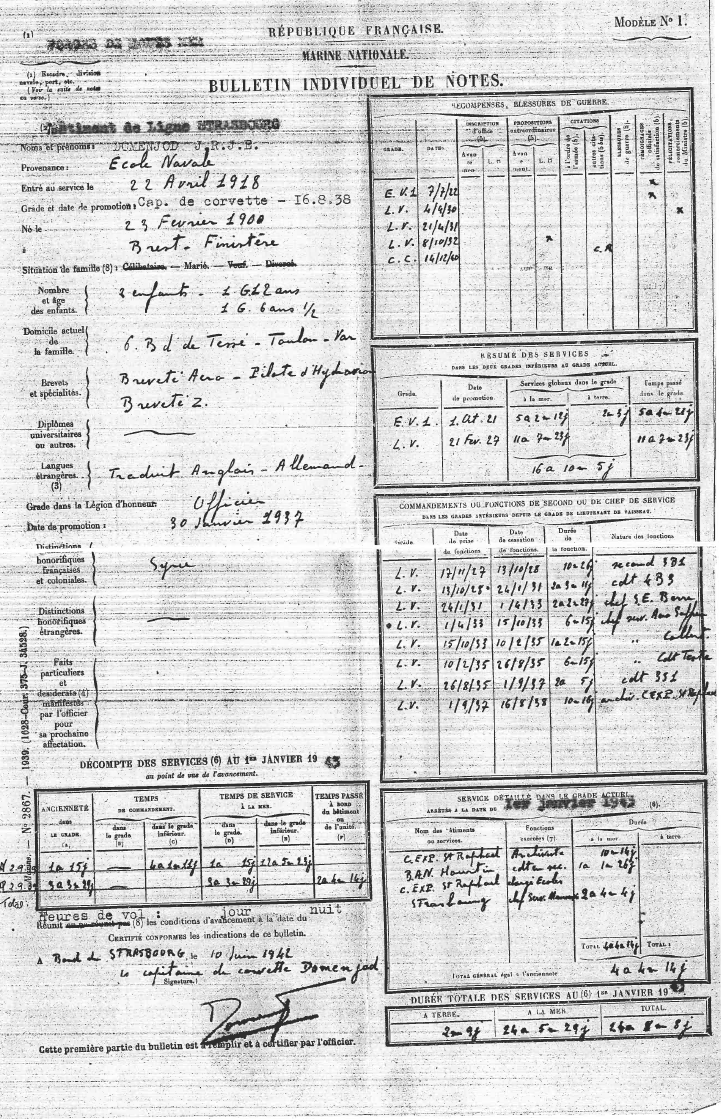 (1)
FORCES DE HAUTE MER
RÉPUBLIQUE FRANÇAISE.
MODÈLE N° 1.
MARINE NATIONALE.
(1) Escadre, division
navale, port, etc.
(Voir la suite de notes
au verso.)
BULLETIN INDIVIDUEL DE NOTES.
Bâtiment de Ligne STRASBOURG
Noms et prénoms : DOMENJOD J.R.J.E.
Provenance : Ecole Navale
Entré au service le 22 Avril 1918
Grade et date de promotion : Cap. de corvette - 16.8.38
Né le 23 Fevrier 1900
à Brest - Finistère
Situation de famille (8) : Célibataire. — Marié. — Veuf. — Divorcé.
Nombre
et âge
des enfants.
2 enfants - 1 G 12 ans
1 G. 6 ans 1/2
Domicile actuel
de
la famille.
6. Bd de Tessé - Toulon - Var
Brevets
et spécialités.
Breveté Aéro - Pilote d'Hydravion
Breveté Z.
Diplômes
universitaires
ou autres.
Langues
étrangères.
(3)
Traduit Anglais - Allemand -
Grade dans la Légion d'honneur : Officier
Date de promotion : 30 Janvier 1937
Distinctions
honorifiques
françaises
et coloniales.
Syrie
Distinctions
honorifiques
étrangères.
Faits
particuliers
et
desiderata (4)
manifestés
par l'officier
pour
sa prochaine
affectation.
RÉCOMPENSES, BLESSURES DE GUERRE.
GRADE.
DATE.
INSCRIPTION
d'office
(5)
PROPOSITIONS
extraordinaires
(5)
CITATIONS
à l'ordre de
l'armée (5).
autres cita-
tions (5 bis).
BLESSURES
de guerre (5).
TÉMOIGNAGES
officiels
de satisfaction (5).
FÉLICITATIONS
du Ministre (5).
E.V.1 7/7/22 x
L.V. 4/4/30 x
L.V. 21/4/31 x
L.V. 8/10/32 x
C.C. 14/12/40 c.R
RÉSUMÉ DES SERVICES
DANS LES DEUX GRADES INFÉRIEURS AU GRADE ACTUEL.
Grade.
Date
de promotion
Services globaux dans le grade
à la mer.
à terre.
Temps passé
dans le grade
E.V.1. 1. Oct. 21 5a 2m 12j 2m 9j 5a 4m 21j
L.V. 21 Fev. 27 11a 7m 23j 11a 7m 23j
16a 10m 5j
COMMANDEMENTS OU FONCTIONS DE SECOND OU DE CHEF DE SERVICE
DANS LES GRADES INFÉRIEURS DEPUIS LE GRADE DE LIEUTENANT DE VAISSEAU.
Grade
Date
de prise
de fonctions
Date
de cessation
de fonctions.
Durée
de
la fonction.
Nature des fonctions
L.V. 17/11/27 13/10/28 10m 26j second 3B1
L.V. 13/10/28 24/1/31 2a 3m 11j cdt 4B3
L.V. 24/1/31 1/4/33 chef S.E. Berre
L.V. 1/4/33 15/10/33 6m 15j chef serv. Aéro
L.V. 15/10/33 10/2/35
L.V. 10/2/35 26/8/35 6m 15j " Cdt Teste
L.V. 26/8/35 1/9/37 2a 5j cdt 3S1
L.V. 1/9/37 16/8/38 archiv. C.EXP. St Raphael
DÉCOMPTE DES SERVICES (6) AU 1er JANVIER 19 43
au point de vue de l'avancement.
ANCIENNETÉ
dans
LE GRADE.
(A)
TEMPS
DE COMMANDEMENT.
dans
le grade
(B)
dans le grade
inférieur.
(C)
TEMPS DE SERVICE
À LA MER.
dans
le grade.
(D)
dans le grade
inférieur.
(E)
TEMPS PASSÉ
à bord
du bâtiment
ou dans
l'unité.
(F)
1a 15j — 1a 15j
3a 3m 29j — 3a 3m 29j 2a 4m 14j
Total :
Heures de vol : jour nuit
Réunit ou ne réunit pas (8) les conditions d'avancement à la date du
CERTIFIÉ CONFORMES les indications de ce bulletin.
A Bord du STRASBOURG, le 10 Juin 1942
Le capitaine de corvette Domenjod
Signature.)
Cette première partie du bulletin est à remplir et à certifier par l'officier.
SERVICE DÉTAILLÉ DANS LE GRADE ACTUEL
ARRÊTÉS À LA DATE DU 1er janvier 1943 (6).
Nom des bâtiments
ou services.
Fonctions
exercées (7).
Durée
à la mer.
à terre.
C. EXP. St Raphael Archiviste 10m 14j
B.A.N. Hourtin cdt en sec. 1a 1m 26j
C. EXP. St Raphael chargé Ecoles
Strasbourg chef Serv. 2a 4m 4j
TOTAL 4a 4m 14j
TOTAL :
TOTAL GÉNÉRAL égal à l'ancienneté 4a 4m 14j
DURÉE TOTALE DES SERVICES AU (6) 1er JANVIER 19 43
À TERRE.
À LA MER
TOTAL.
2m 9j 24a 5m 29j 24a 8m 8j
N° 2867. — 1939. (1628-Cour. 375-J. 34528.)